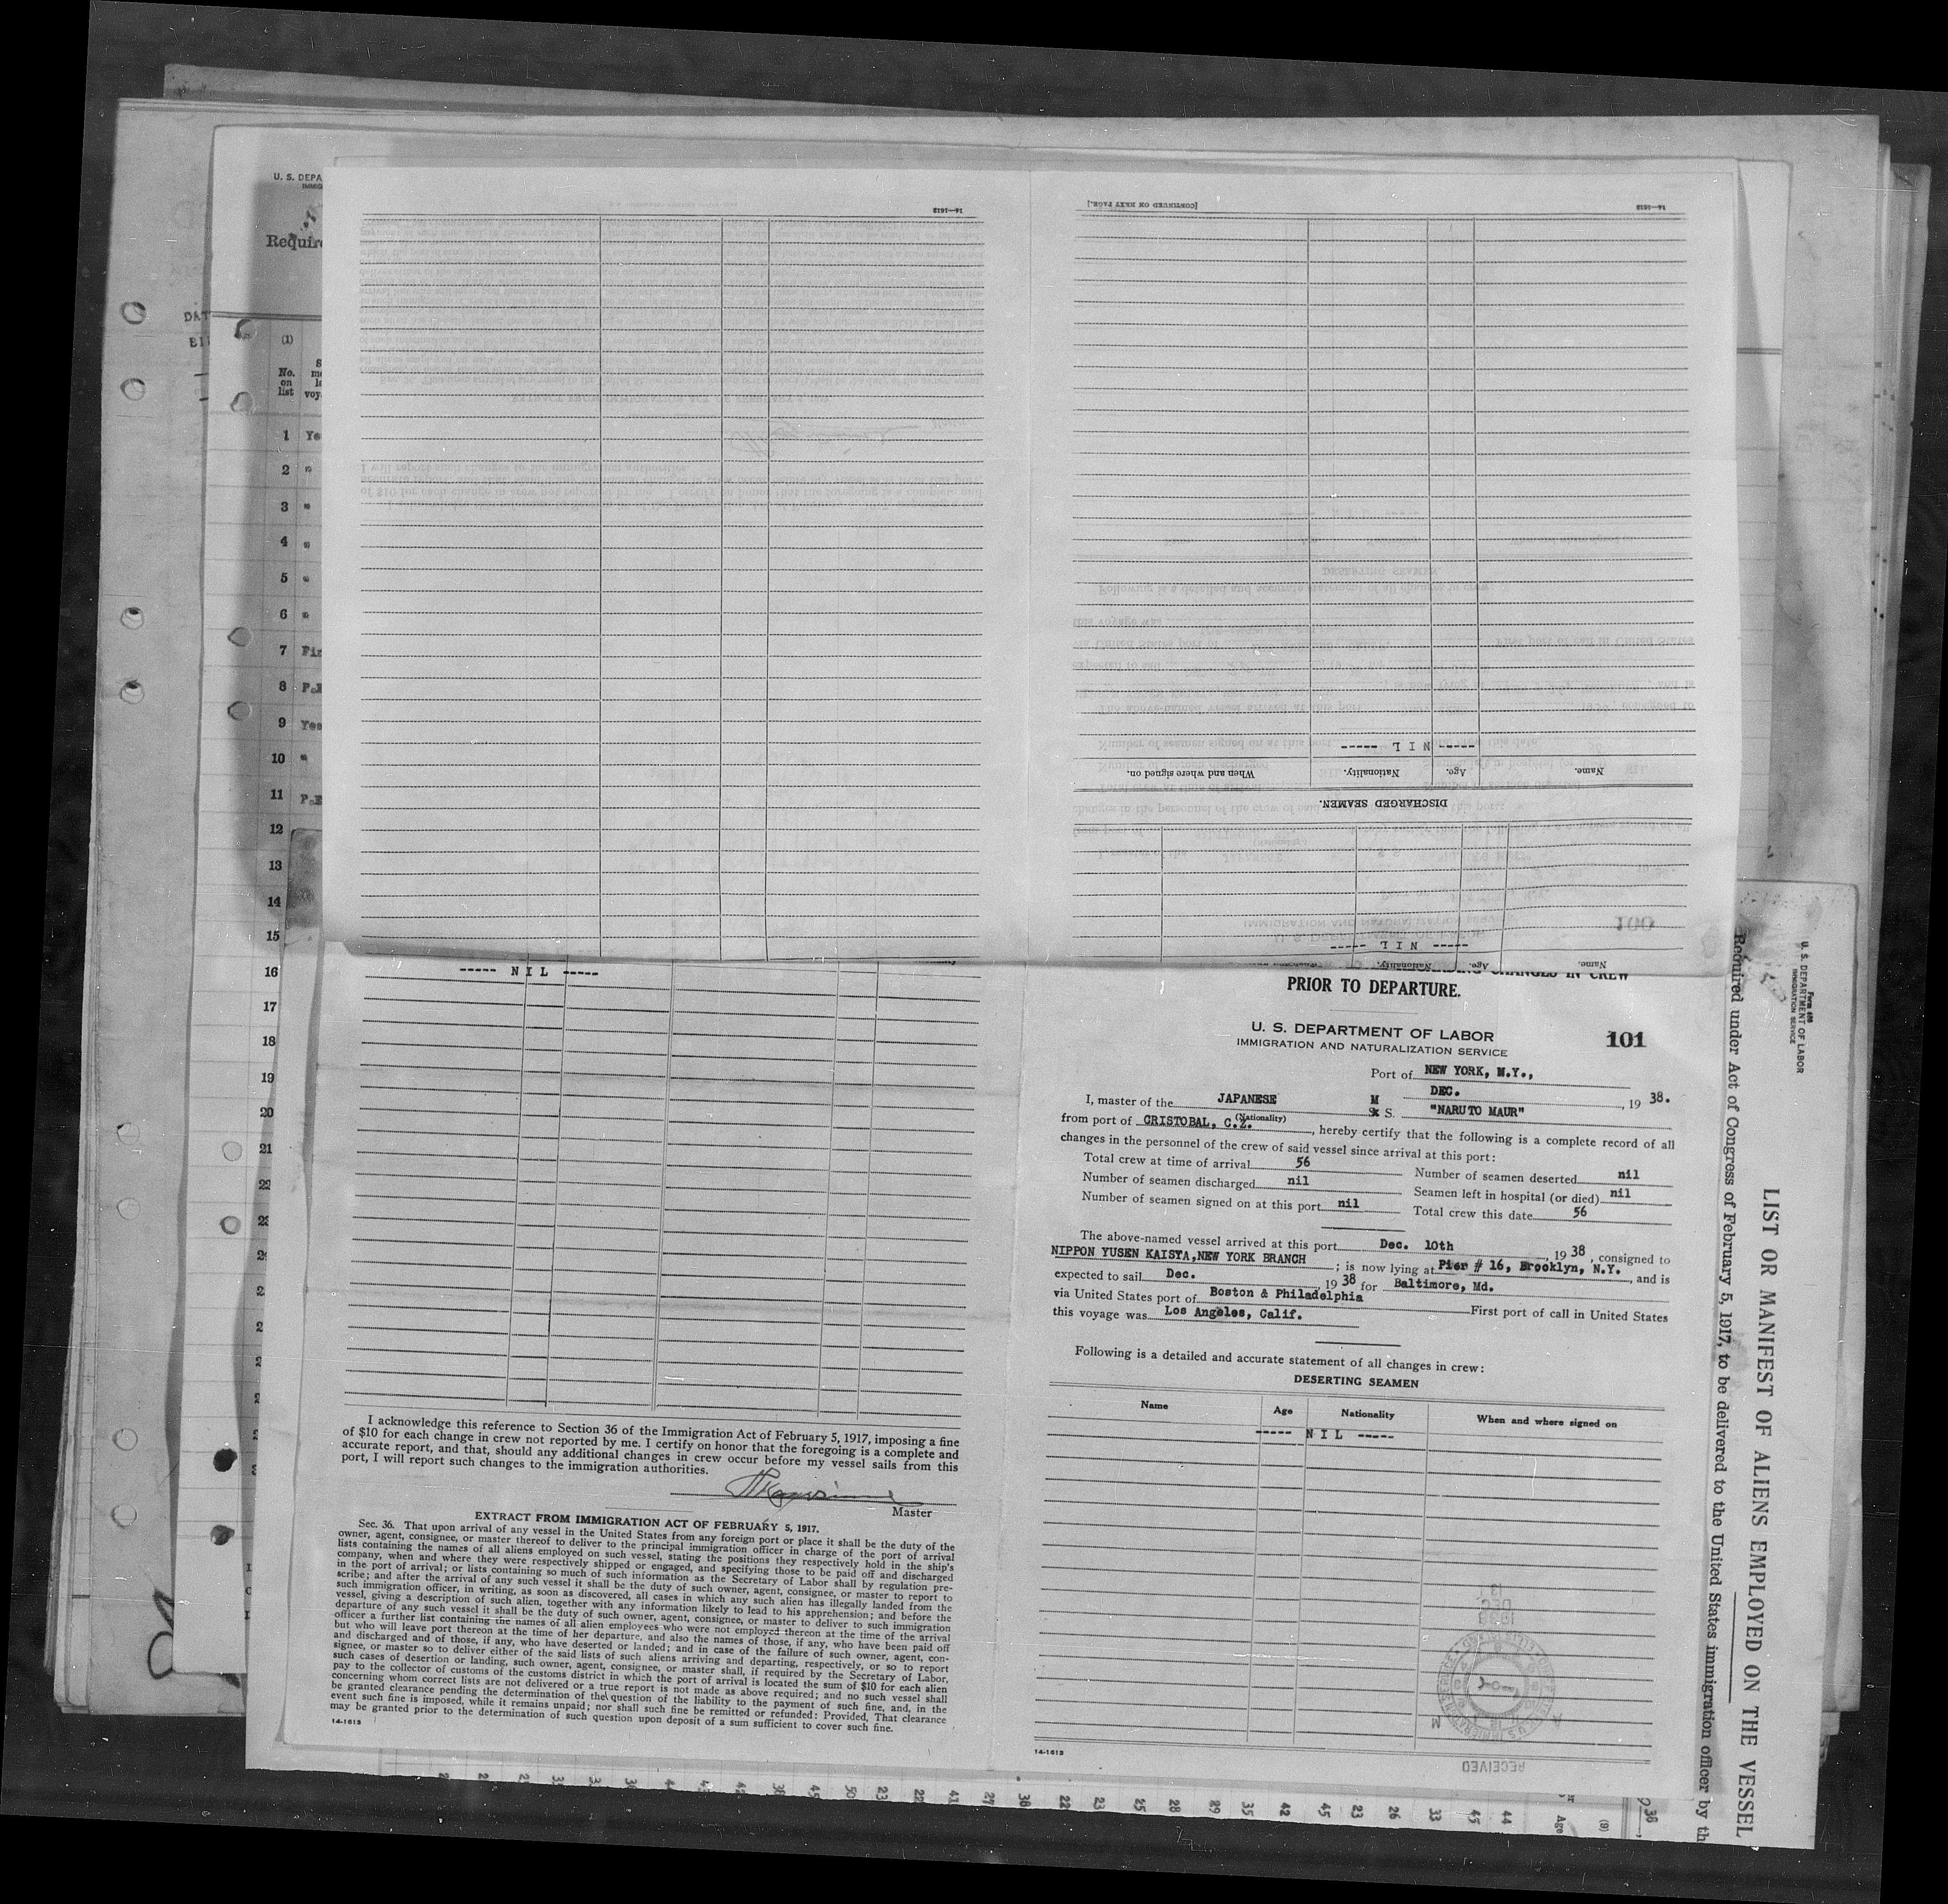 U. S. DEPA
Require
(1)
No.
on
list
1 Ye
2 "
3 "
4 "
5 "
6 "
7 Fir
8 P.E
9 Yes
10 "
11 P.E
12
13
14
15
16
17
18
19
20
21
14—1613
[CONTINUED ON NEXT PAGE.]
14—1613
----- N I L -----
When and where signed on.
Nationality.
Age.
Name.
DISCHARGED SEAMEN.
----- N I L -----
Nationality.
Age.
Name.
----- N I L -----
I acknowledge this reference to Section 36 of the Immigration Act of February 5, 1917, imposing a fine
of $10 for each change in crew not reported by me. I certify on honor that the foregoing is a complete and
accurate report, and that, should any additional changes in crew occur before my vessel sails from this
port, I will report such changes to the immigration authorities.
Master
EXTRACT FROM IMMIGRATION ACT OF FEBRUARY 5, 1917.
Sec. 36. That upon arrival of any vessel in the United States from any foreign port or place it shall be the duty of the
owner, agent, consignee, or master thereof to deliver to the principal immigration officer in charge of the port of arrival
lists containing the names of all aliens employed on such vessel, stating the positions they respectively hold in the ship's
company, when and where they were respectively shipped or engaged, and specifying those to be paid off and discharged
in the port of arrival; or lists containing so much of such information as the Secretary of Labor shall by regulation pre-
scribe; and after the arrival of any such vessel it shall be the duty of such owner, agent, consignee, or master to report to
such immigration officer, in writing, as soon as discovered, all cases in which any such alien has illegally landed from the
vessel, giving a description of such alien, together with any information likely to lead to his apprehension; and before the
departure of any such vessel it shall be the duty of such owner, agent, consignee, or master to deliver to such immigration
officer a further list containing the names of all alien employees who were not employed thereon at the time of the arrival
but who will leave port thereon at the time of her departure, and also the names of those, if any, who have been paid off
and discharged and of those, if any, who have deserted or landed; and in case of the failure of such owner, agent, con-
signee, or master so to deliver either of the said lists of such aliens arriving and departing, respectively, or so to report
such cases of desertion or landing, such owner, agent, consignee, or master shall, if required by the Secretary of Labor,
pay to the collector of customs of the customs district in which the port of arrival is located the sum of $10 for each alien
concerning whom correct lists are not delivered or a true report is not made as above required; and no such vessel shall
be granted clearance pending the determination of the question of the liability to the payment of such fine, and, in the
event such fine is imposed, while it remains unpaid; nor shall such fine be remitted or refunded: Provided, That clearance
may be granted prior to the determination of such question upon deposit of a sum sufficient to cover such fine.
14-1613
CHANGES IN CREW
PRIOR TO DEPARTURE.
U. S. DEPARTMENT OF LABOR
IMMIGRATION AND NATURALIZATION SERVICE
101
Port of NEW YORK, N.Y.,
DEC. , 19 38.
I, master of the JAPANESE M S. "NARUTO MAUR"
(Nationality)
from port of CRISTOBAL, C.Z. , hereby certify that the following is a complete record of all
changes in the personnel of the crew of said vessel since arrival at this port:
Total crew at time of arrival 56 Number of seamen deserted nil
Number of seamen discharged nil Seamen left in hospital (or died) nil
Number of seamen signed on at this port nil Total crew this date 56
The above-named vessel arrived at this port Dec. 10th , 19 38 , consigned to
NIPPON YUSEN KAISYA,NEW YORK BRANCH ; is now lying at Pier # 16, Brooklyn, N.Y. , and is
expected to sail Dec. , 19 38 for Baltimore, Md.
via United States port of Boston & Philadelphia First port of call in United States
this voyage was Los Angeles, Calif.
Following is a detailed and accurate statement of all changes in crew:
DESERTING SEAMEN
Name Age Nationality When and where signed on
----- N I L -----
1938
DEC
13
RECEIVED
14-1613
Form 689
U. S. DEPARTMENT OF LABOR
IMMIGRATION SERVICE
LIST OR MANIFEST OF ALIENS EMPLOYED ON THE VESSEL
Required under Act of Congress of February 5, 1917, to be delivered to the United States immigration officer by th
41 27 38 22 23 25 28 29 35 42 45 23 26 33 45 44
Age
(9)
938